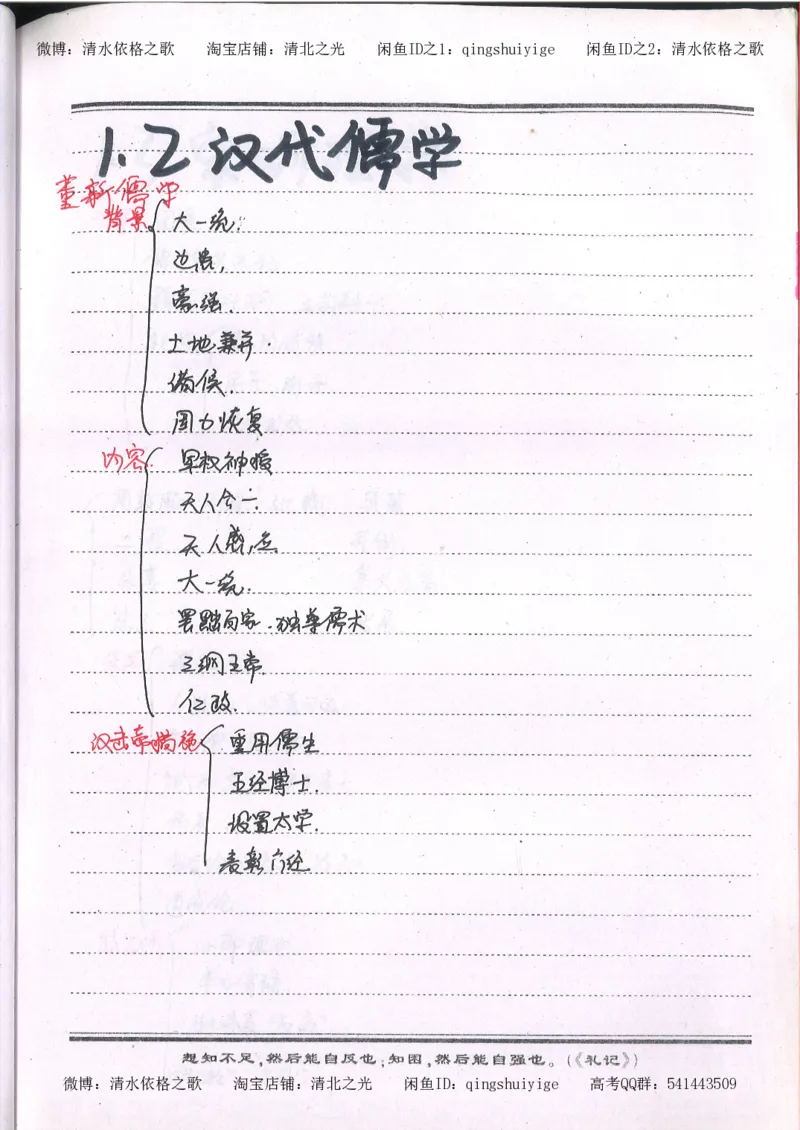 微博：清水依格之歌 淘宝店铺：清北之光 闲鱼ID之1：qingshuiyige 闲鱼ID之2：清水依格之歌
1.2 汉代儒学
董新儒学
背景
大一统.
边患,
豪强.
土地兼并.
诸侯.
国力恢复
内容
君权神授
天人合一.
天人感应.
大一统.
罢黜百家.独尊儒术
三纲五常.
仁政.
汉武帝措施
重用儒生
五经博士.
设置太学.
表彰六经
想知不足,然后能自反也;知困,然后能自强也。(《礼记》)
微博：清水依格之歌 淘宝店铺：清北之光 闲鱼ID：qingshuiyige 高考QQ群：541443509